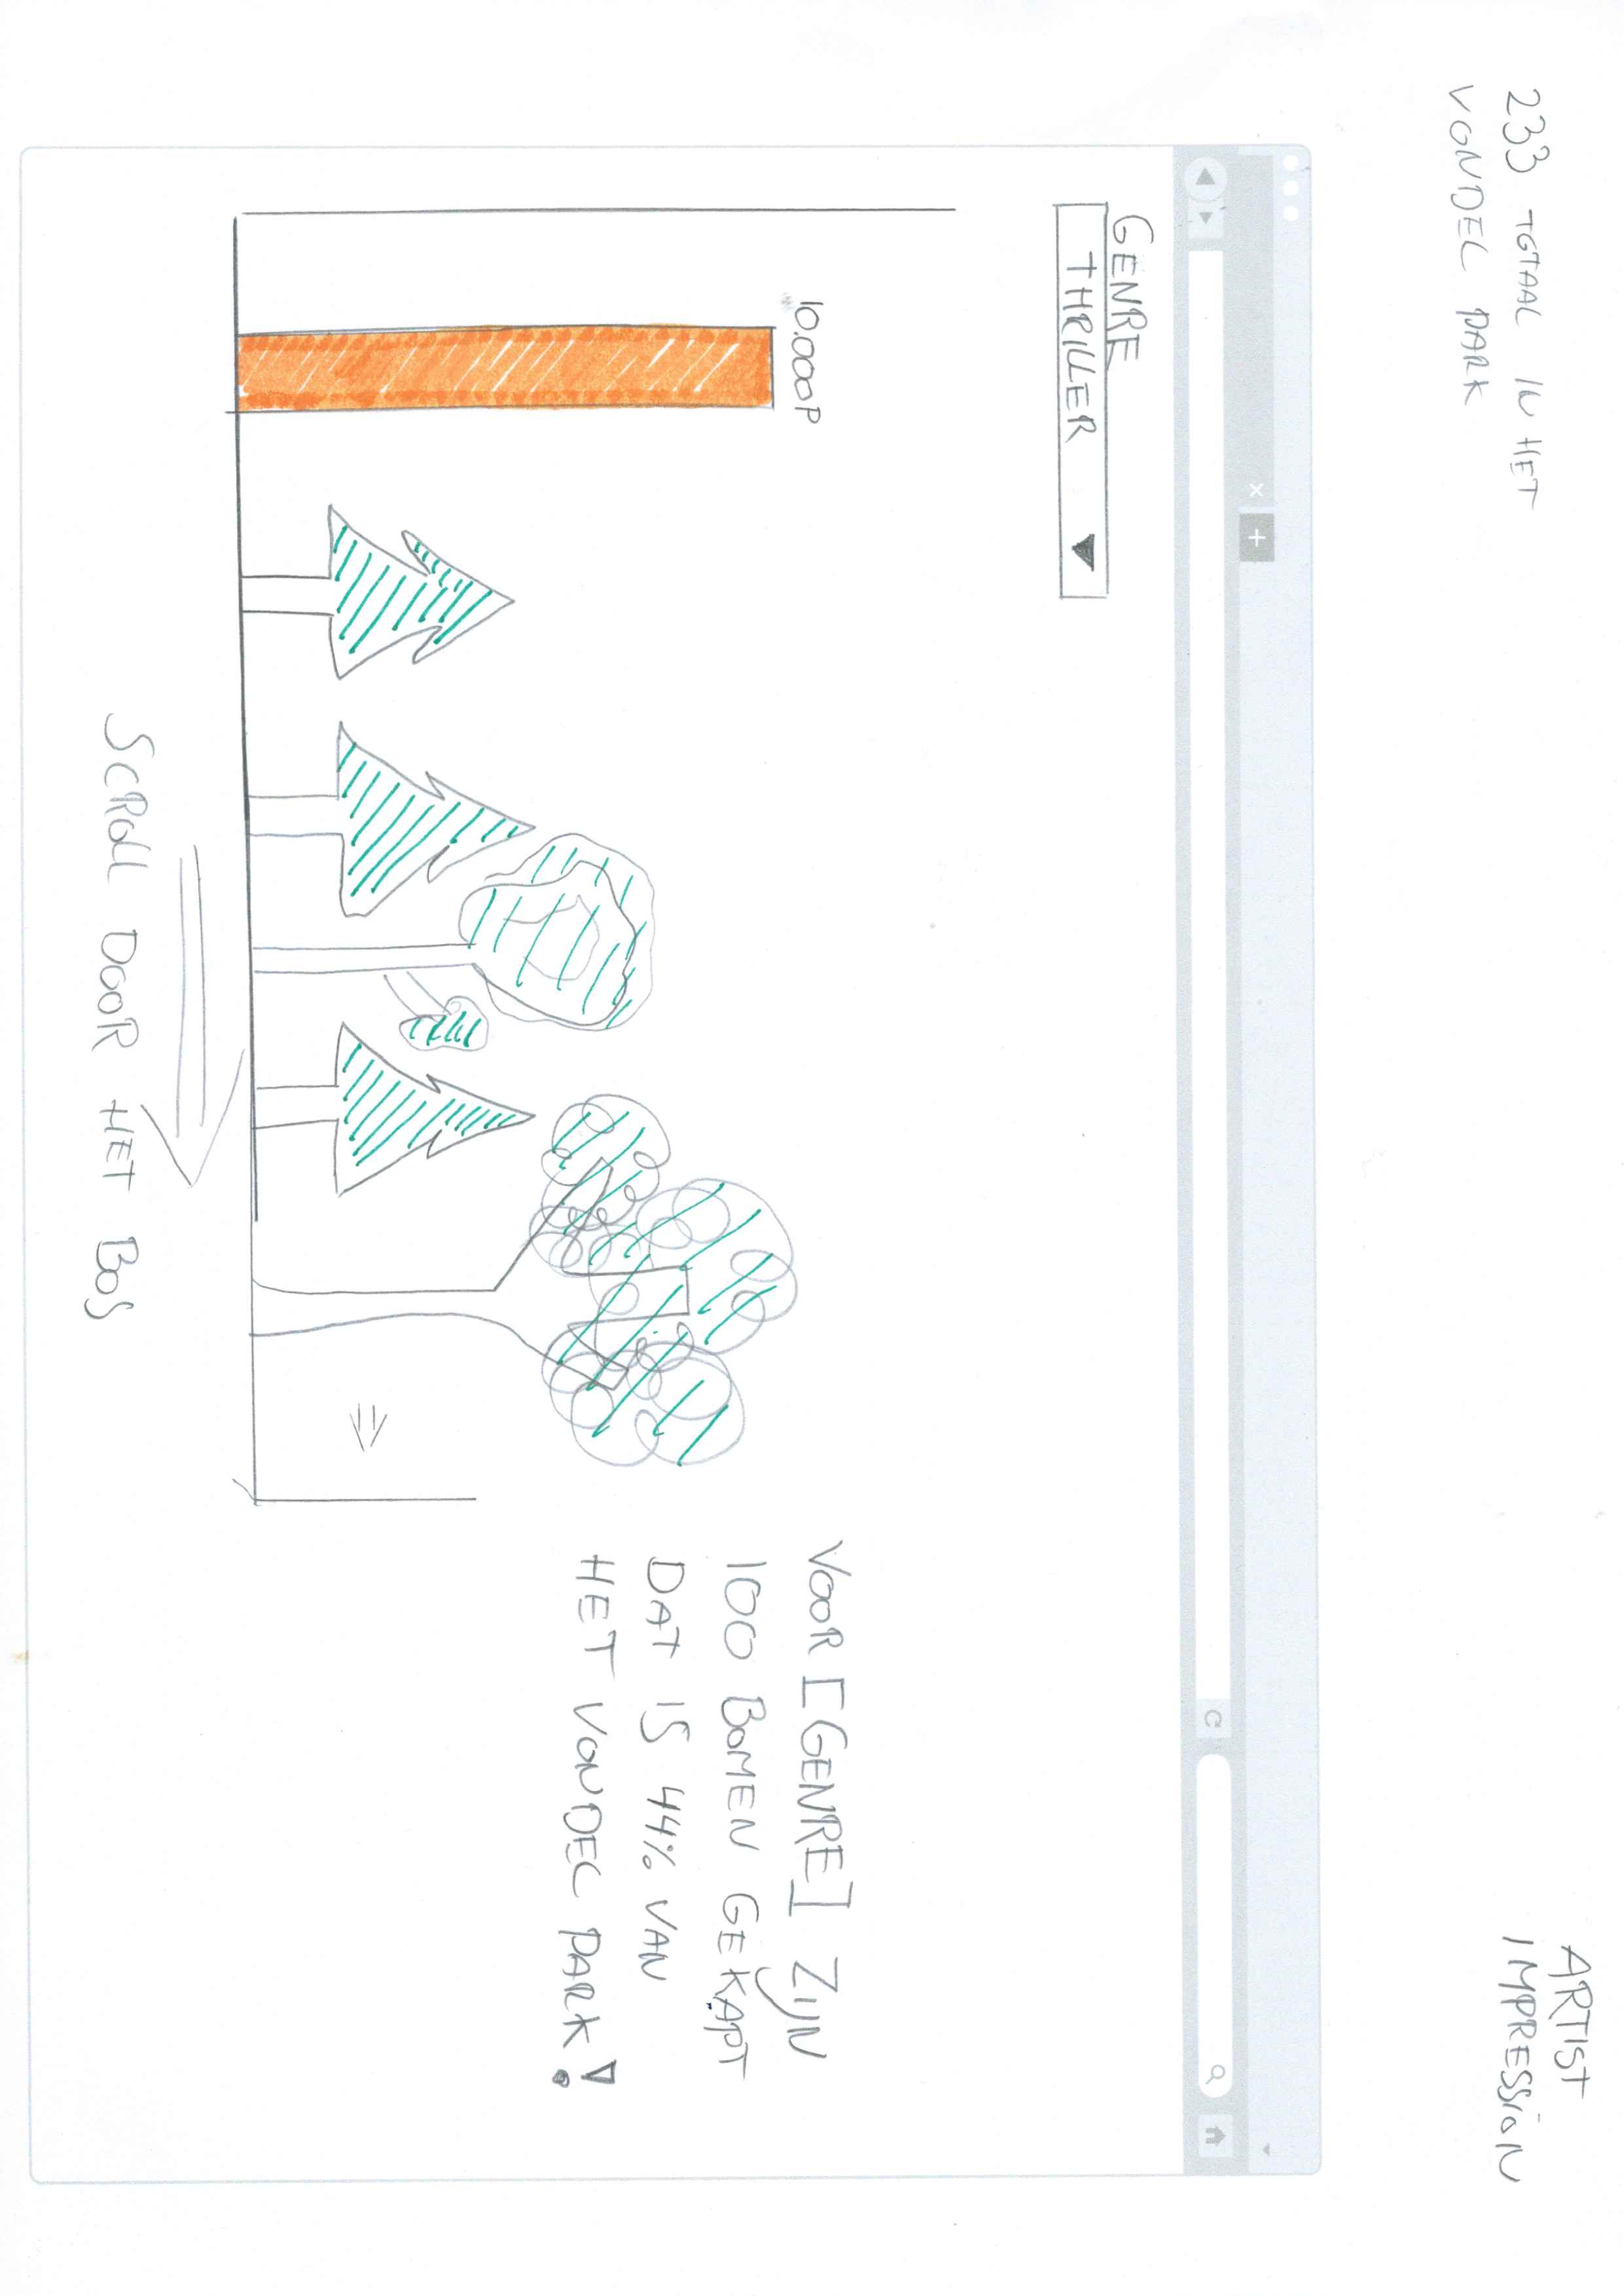 233 TOTAAL IN HET
VONDEL PARK
ARTIST
IMPRESSION
GENRE
THRILLER
10.000P
VOOR [GENRE] ZIJN
100 BOMEN GEKAPT
DAT IS 44% VAN
HET VONDEL PARK!
SCROLL DOOR HET BOS